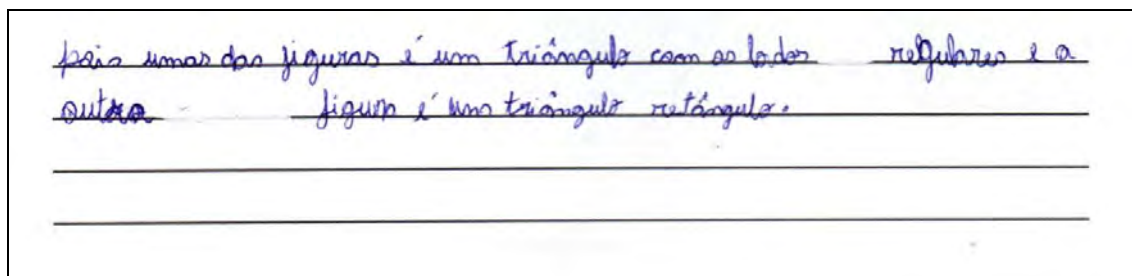 pois umas das figuras é um triângulo com os lados regulares e a
outra figura é um triângulo retângulo.